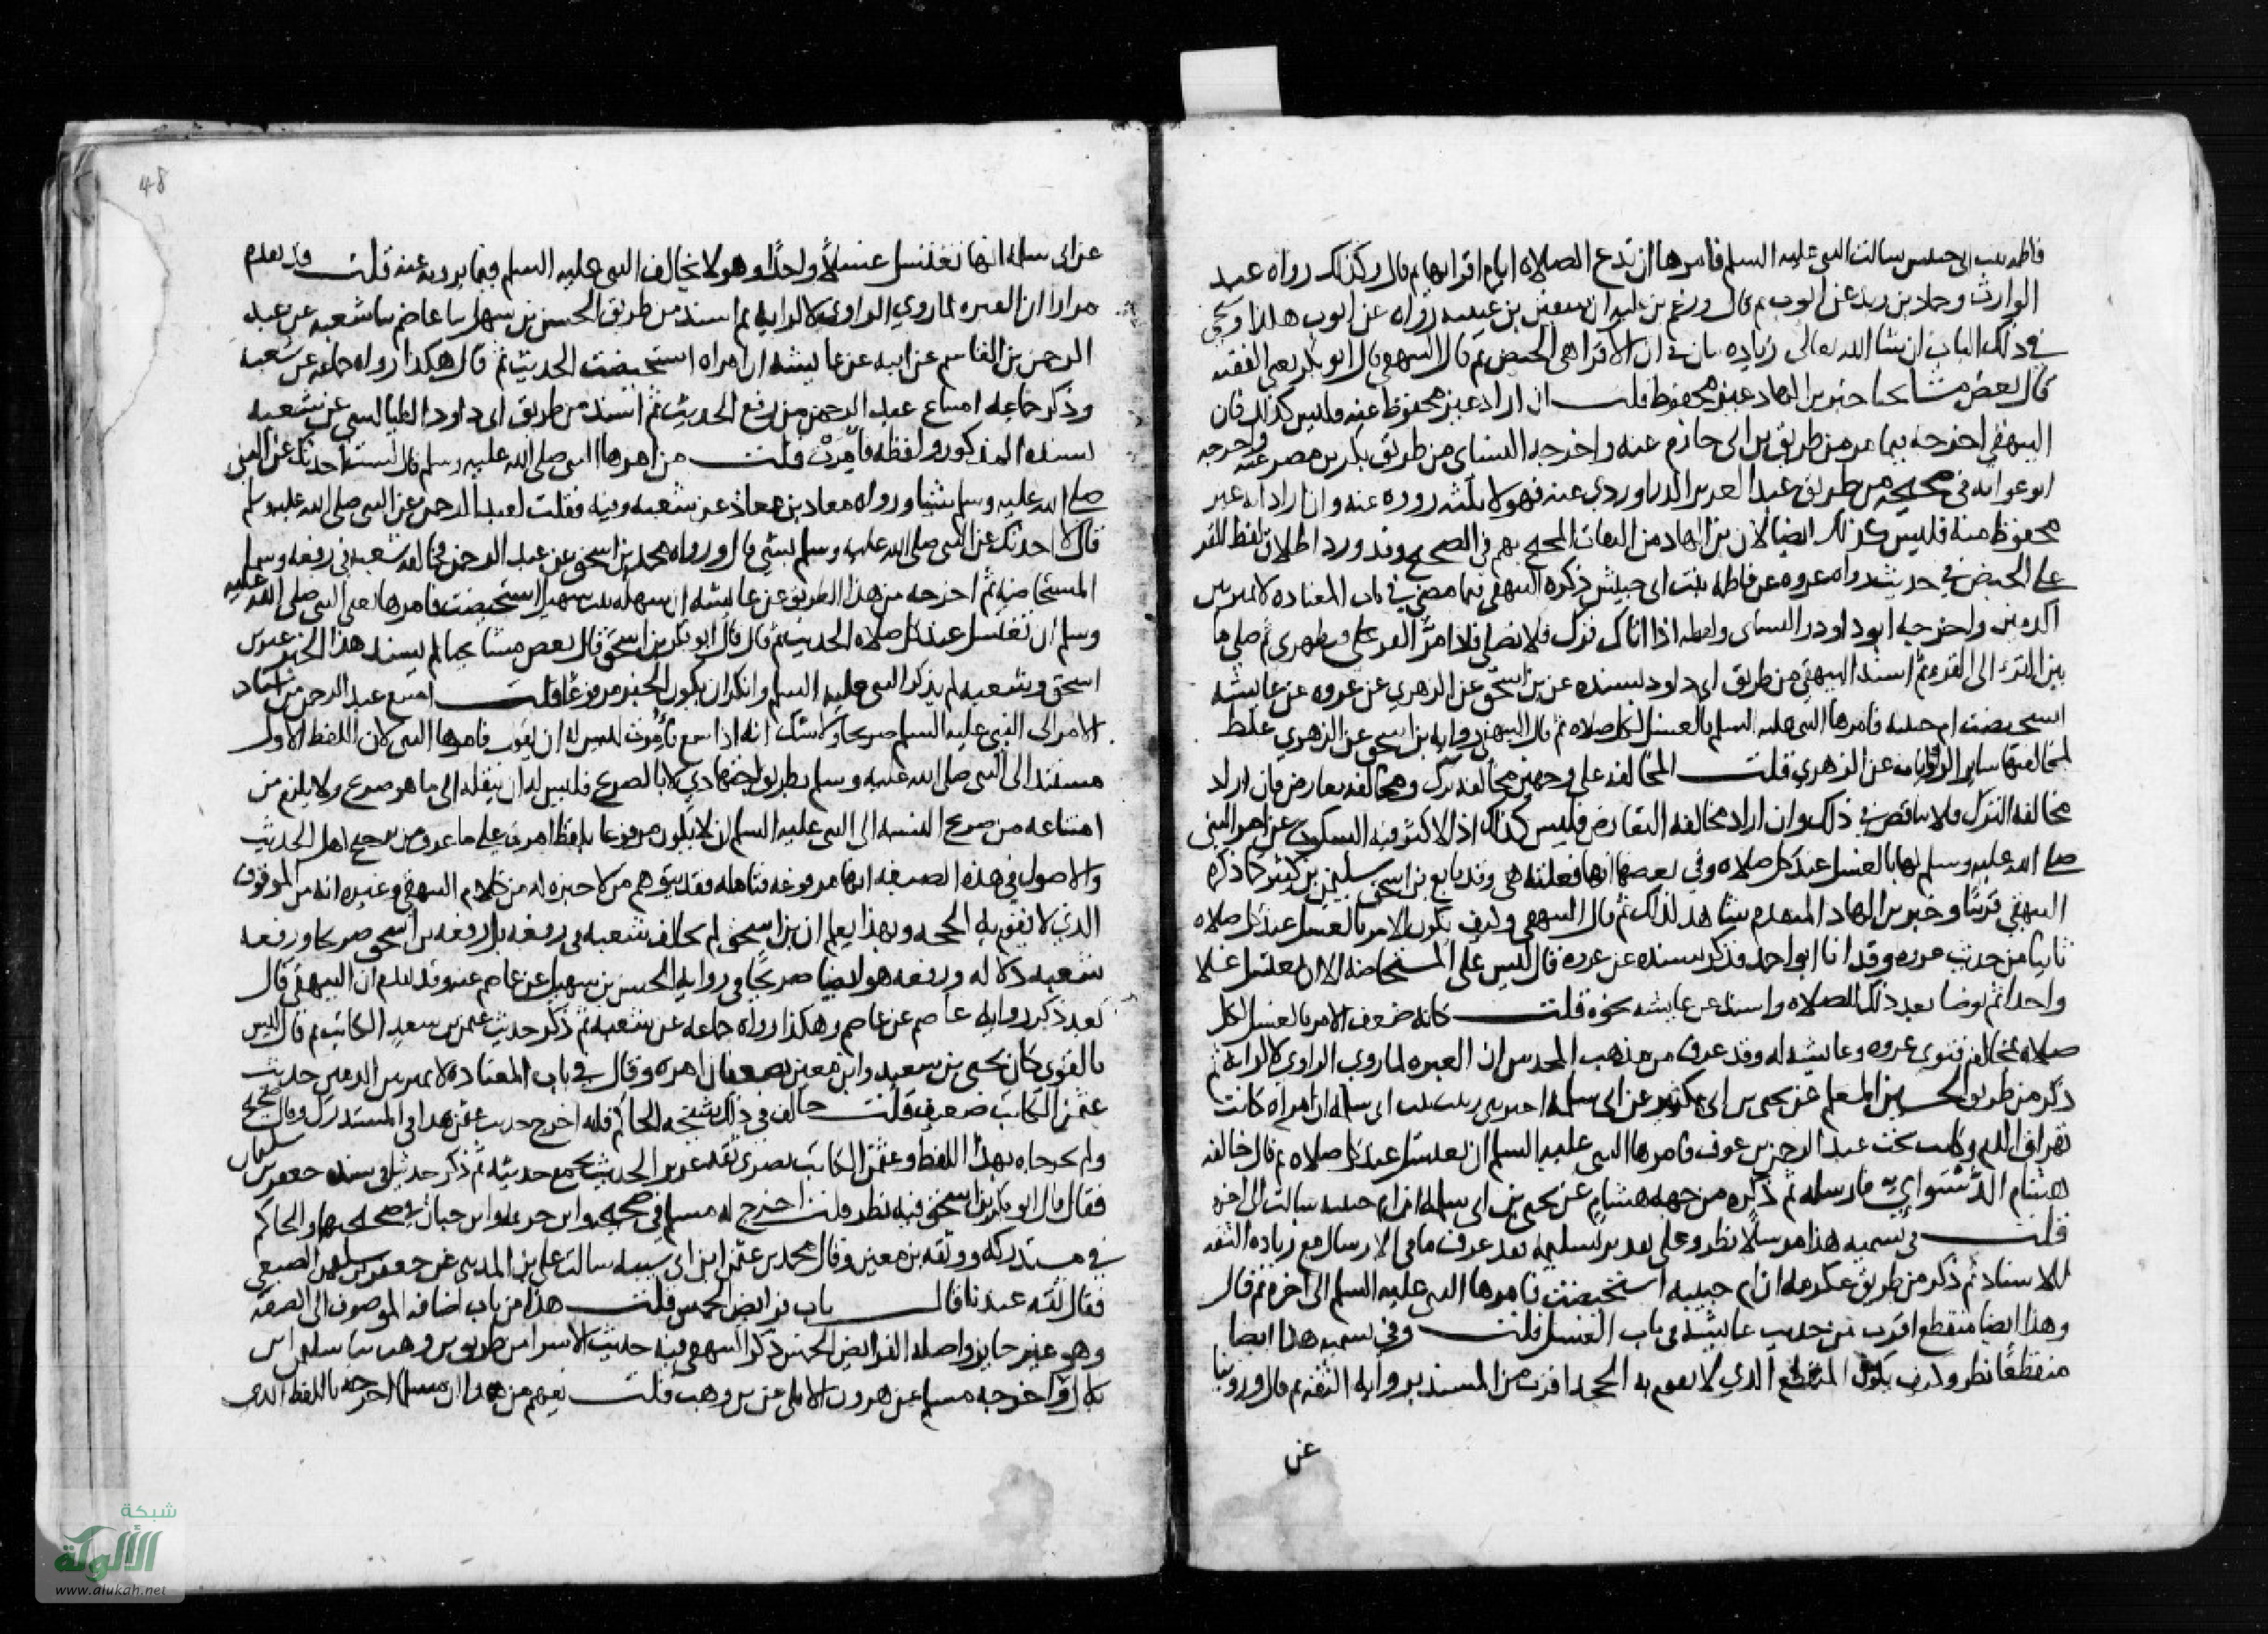 فاطمه بنت ابى حبيش سالت النبى عليه السلم فامرها ان تدع الصلاه ايام اقرايها ثم قال وكذلك رواه عبد
الوارث وحماد بن زيد عن ايوب ثم قال وزعم بن عليه ان سفين بن عيينه رواه عن ايوب هكذا وسيجى
في ذلك الباب ان شا الله تعالى زياده بيان في ان الاقرا هى الحيض ثم قال البيهقى قال ابو بكر يعنى الفقيه
قال بعض مشايخنا خبر بن الهاد غير محفوظ قلت ان اراد غير محفوظ عنه فليس كذلك فان
البيهقي اخرجه فيما مر من طريق بن ابى حازم عنه واخرجه النساى من طريق بكر بن مضر عنه واخرجه
ابو عوانه في صحيحه من طريق عبد العزيز الدراوردي عنه فهولا ثلثه رووه عنه وان اراد انه غير
محفوظ منه فليس كذلك ايضا لان بن الهاد من الثقات المحتج بهم في الصحيح وقد ورد اطلاق لفظ القر
على الحيض في حديث رواه عروه عن فاطمه بنت ابى حبيش ذكره البيهقى فيما مضى في باب المعتاده لا تميز بين
الدمين واخرجه ابو داود والنساى ولفظه اذا اتاك قرؤك فلا تصلى فاذا مر القر فتطهري ثم صلى ما
بين القرء الى القرء ثم اسند البيهقي من طريق ابى داود بسنده عن بن اسحق عن الزهري عن عروه عن عايشه
استحيضت ام حبيبه فامرها النبى عليه السلم بالغسل لكل صلاه ثم قال البيهقي روايه بن اسحق عن الزهري غلط
لمخالفتها ساير الروايات عن الزهري قلت المخالفه على وجهين مخالفه ترك ومخالفه تعارض فان اراد
مخالفه الترك فلا تناقض في ذلك وان اراد مخالفه التعارض فليس كذلك اذ الاكثر فيه السكوت عن امر النبى
صلى الله عليه وسلم لها بالغسل عند كل صلاه وفى بعضها انها فعلته هى وقد تابع بن اسحق سليمن بن كثير كما ذكره
البيهقي قريبا وخبر بن الهاد المتقدم شاهد لذلك ثم قال البيهقى وكيف يكون الامر بالغسل عند كل صلاه
ثابتا من حديث عروه وقد انا ابو احمد فذكر بسنده عن عروه قال ليس على المستحاضه الا ان تغتسل غسلا
واحدا ثم توضا بعد ذلك للصلاه واسند عن عايشه نحوه قلت كانه ضعف الامر بالغسل لكل
صلاه بمخالفه فتوى عروه وعايشه له وقد عرف من مذهب المحدثين ان العبره لما روى الراوى لا لرايه ثم
ذكر من طريق الحسين المعلم عن يحيى بن ابى كثير عن ابى سلمه اخبرتنى زينب بنت ابى سلمه ان امراه كانت
تهراق الدم وكانت تحت عبد الرحمن بن عوف فامرها النبى عليه السلم ان تغتسل عند كل صلاه ثم قال خالفه
هشام الدستواي فارسله ثم ذكره من جهه هشام عن يحيى بن ابى سلمه ان ام حبيبه سالت الى اخره
قلت في تسميه هذا مرسلا نظر وعلى تقدير تسليمه قد عرف ما في الارسال مع زياده الثقه
للاسناد ثم ذكر من طريق عكرمه ان ام حبيبه استحيضت فامرها النبى عليه السلم الى اخره ثم قال
وهذا ايضا منقطع اقرب من حديث عايشه فى باب الغسل قلت وفى تسميه هذا ايضا
منقطعا نظر وكيف يكون المنقطع الذي لا تقوم به الحجه اقرب من المسند بروايه الثقه ثم قال وروينا
عن
48
عن ابى سلمه انها تغتسل غسلا واحدا وهو لا يخالف النبى عليه السلم فيما يرويه عنه قلت قد تقدم
مرارا ان العبره لما روي الراوى لا لرايه ثم اسند من طريق الحسن بن سهل ثنا عاصم ثنا شعبه عن عبد
الرحمن بن القاسم عن ابيه عن عايشه ان امراه استحيضت الحديث ثم قال هكذا رواه جماعه عن شعبه
وذكر جماعه امتناع عبد الرحمن من رفع الحديث ثم اسند من طريق ابى داود الطيالسي عن شعبه
بسنده المذكور ولفظه فامرت قلت من امرها النبى صلى الله عليه وسلم قال لست احدثك عن النبى
صلى الله عليه وسلم شيا ورواه معاذ بن معاذ عن شعبه وفيه فقلت لعبد الرحمن عن النبى صلى الله عليه وسلم
قال لا احدثك عن النبى صلى الله عليه وسلم بشى قال ورواه محمد بن اسحق عن عبد الرحمن فخالف شعبه فى رفعه وسمى
المستحاضه ثم اخرجه من هذا الطريق عن عايشه ان سهله بنت سهيل استحيضت فامرها يعنى النبى صلى الله عليه
وسلم ان تغتسل عند كل صلاه الحديث ثم قال قال ابو بكر بن اسحق قال بعض مشايخنا لم يسند هذا الخبر غير بن
اسحق وشعبه لم يذكر النبى عليه السلم وانكر ان يكون الخبر مرفوعا قلت امتنع عبد الرحمن من اسناد
الامر الى النبى عليه السلم صريحا ولا شك انه اذا سمع فامرت ليس له ان يقول فامرها النبى لان اللفظ الاول
مستند الى النبى صلى الله عليه وسلم بطريق اجتهادي لا بالصريح فليس له ان ينقله الى ما هو صريح ولا يلزم من
امتناعه من صريح النسبه الى النبى عليه السلم ان لا يكون مرفوعا بلفظ امرت على ما عرف من ترجيح اهل الحديث
والاصول فى هذه الصيغه انها مرفوعه فتامله فقد يتوهم من لا خبره له من كلام البيهقى وغيره انه من الموقوف
الذى لا تقوم به الحجه وبهذا يعلم ان بن اسحق لم يخالف شعبه فى رفعه بل رفعه بن اسحق صريحا ورفعه
شعبه دلاله ورفعه هو ايضا صريحا في روايه الحسن بن سهيل عن عاصم عنه وقد تقدم ان البيهقى قال
بعد ذكر روايه عاصم عن عاصم وهكذا رواه جماعه عن شعبه ثم ذكر حديث عثمن بن سعد الكاتب ثم قال ليس
بالقوي كان يحيى بن سعيد وابن معين يضعفان امره وقال في باب المعتاده لا تميز بين الدمين حديث
عثمن الكاتب ضعيف قلت خالف فى ذلك شيخه الحاكم فانه اخرج حديث عثمن هذا فى المستدرك وقال صحيح
ولم يخرجاه بهذا اللفظ وعثمن الكاتب بصرى ثقه عزيز الحديث يجمع حديثه ثم ذكر حديثا فى سنده جعفر بن سليمان
فقال قال ابو بكر بن اسحق فيه نظر قلت اخرج له مسلم فى صحيحه وابن خزيمه وابن حبان فى صحيحيهما والحاكم
في مستدركه ووثقه بن معين وقال محمد بن عثمن ابن ابى شيبه سالت على بن المدينى عن جعفر بن سليمن الضبعى
فقال ثقه عندنا قال باب فرايض الخمس قلت هذا من باب اضافه الموصوف الى الصفه
وهو غير جايز واصله الفرايض الخمس ذكر البيهقى فيه حديث الاسرا من طريق بن وهب ثنا سليمن
بلال واخرجه مسلم عن هرون الايلى عن بن وهب قلت يفهم من هذا ان مسلما اخرجه باللفظ الذى
شبكة
الألوكة
www.alukah.net